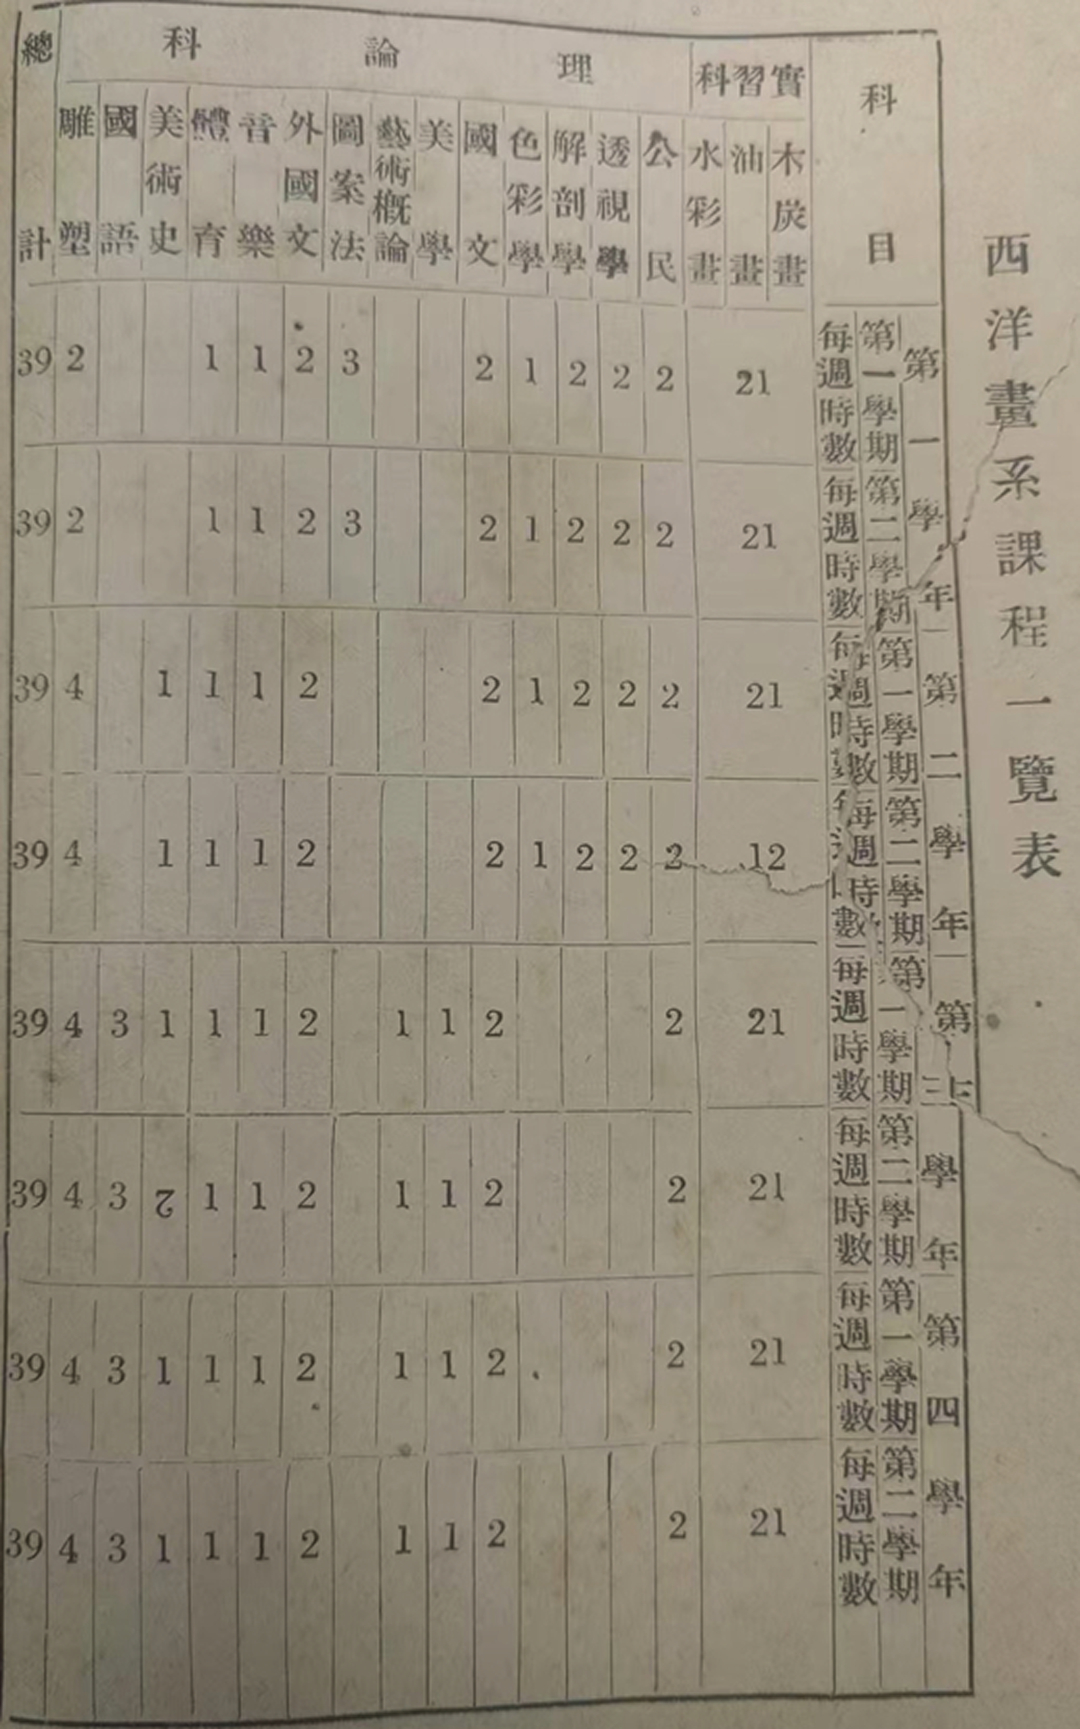 西洋畫系課程一覽表
科目 第一學年 第二學年 第三學年 第四學年
第一學期 第二學期 第一學期 第二學期 第一學期 第二學期 第一學期 第二學期
每週時數 每週時數 每週時數 每週時數 每週時數 每週時數 每週時數 每週時數
實習科
木炭畫
油畫
水彩畫
21 21 21 12 21 21 21 21
理論科
公民 2 2 2 2 2 2 2 2
透視學 2 2 2 2
解剖學 2 2 2 2
色彩學 1 1 1 1
國文 2 2 2 2 2 2 2 2
美學 1 1 1 1
藝術概論 1 1 1 1
圖案法 3 3
外國文 2 2 2 2 2 2 2 2
音樂 1 1 1 1 1 1 1 1
體育 1 1 1 1 1 1 1 1
美術史 1 1 1 2 1 1
國語 3 3 3 3
雕塑 2 2 4 4 4 4 4 4
總計 39 39 39 39 39 39 39 39